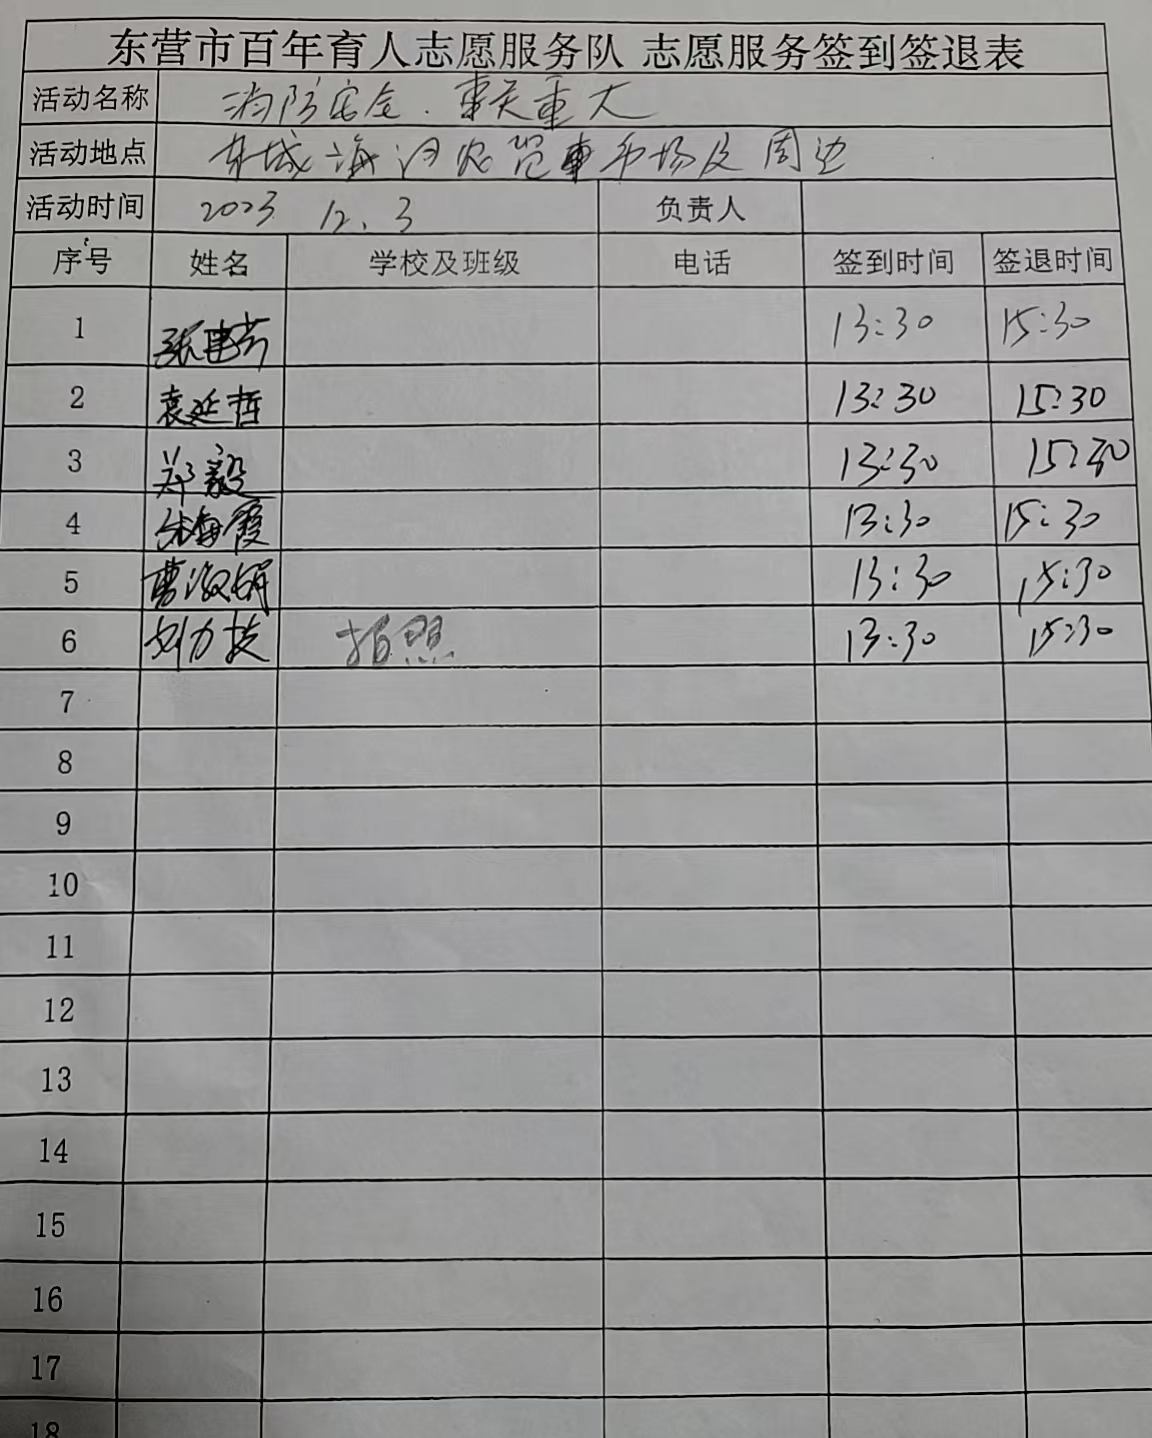 东营市百年育人志愿服务队 志愿服务签到签退表
活动名称 消防安全.事关重大
活动地点 东城海河农贸市场及周边
活动时间 2023 12.3 负责人
序号 姓名 学校及班级 电话 签到时间 签退时间
1 张建芳 13:30 15:30
2 袁延哲 13:30 15:30
3 郑毅 13:30 15:30
4 海霞 13:30 15:30
5 曹淑娟 13:30 15:30
6 刘力 拍照 13:30 15:30
7
8
9
10
11
12
13
14
15
16
17
18